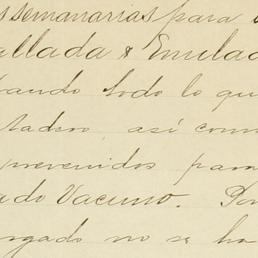 s semanarias para
allada & Emelad
ando todo lo qu
tadero, así com
prevenidos para
ado Vacuno. Por
rgado no se ha